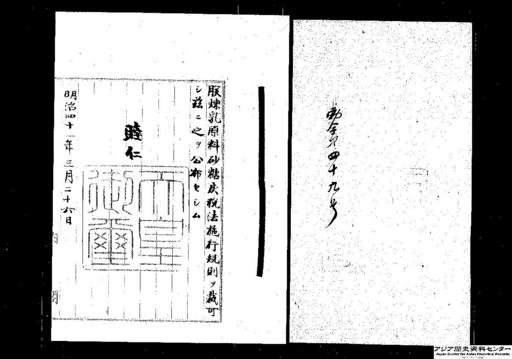 勅令第四十九号
朕煉乳原料砂糖戻税法施行規則ヲ裁可
シ茲ニ之ヲ公布セシム
睦仁
天皇御璽
明治四十一年三月二十六日
アジア歴史資料センター
Japan Center for Asian Historical Records